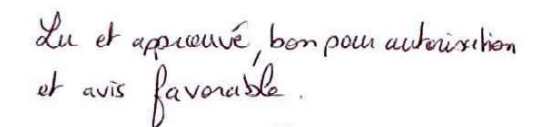 Lu et approuvé, bon pour autorisation
et avis favorable.